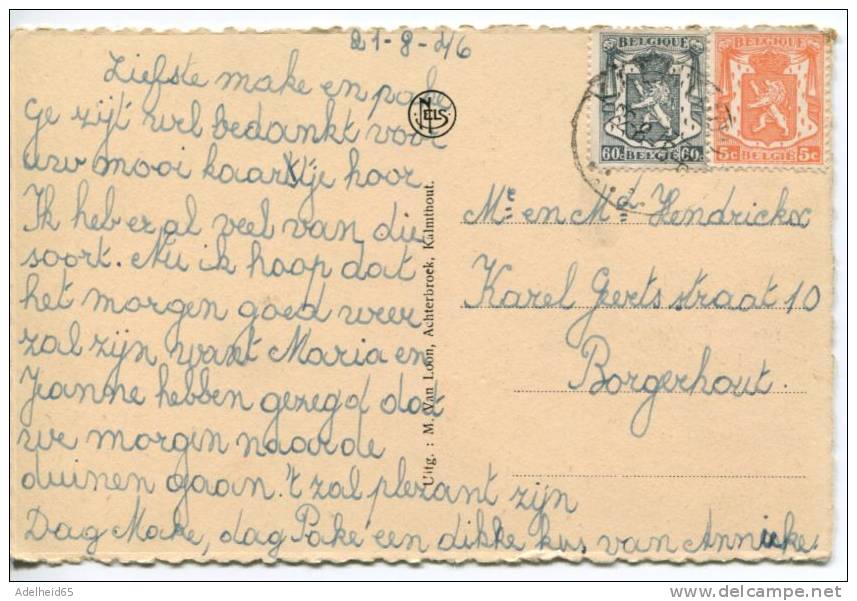 21-8-46
Liefste make en pake
Ge zijt wel bedankt voor
uw mooi kaartje hoor
Ik heb er al veel van die
soort. Nu ik hoop dat
het morgen goed weer
zal zijn want Maria en
Jeanne hebben gezegd dat
we morgen naar de
duinen gaan. 't zal plezant zijn
Dag Make, dag Pake een dikke kus van Annieke
NELS
Uitg. : M. Van Loon, Achterbroek, Kalmthout.
BELGIQUE
60c BELGIË 60c
BELGIQUE
5c BELGIË 5c
Mr en Md Hendrickx
Karel Geertsstraat 10
Borgerhout.
Adelheid65
delcampe.net